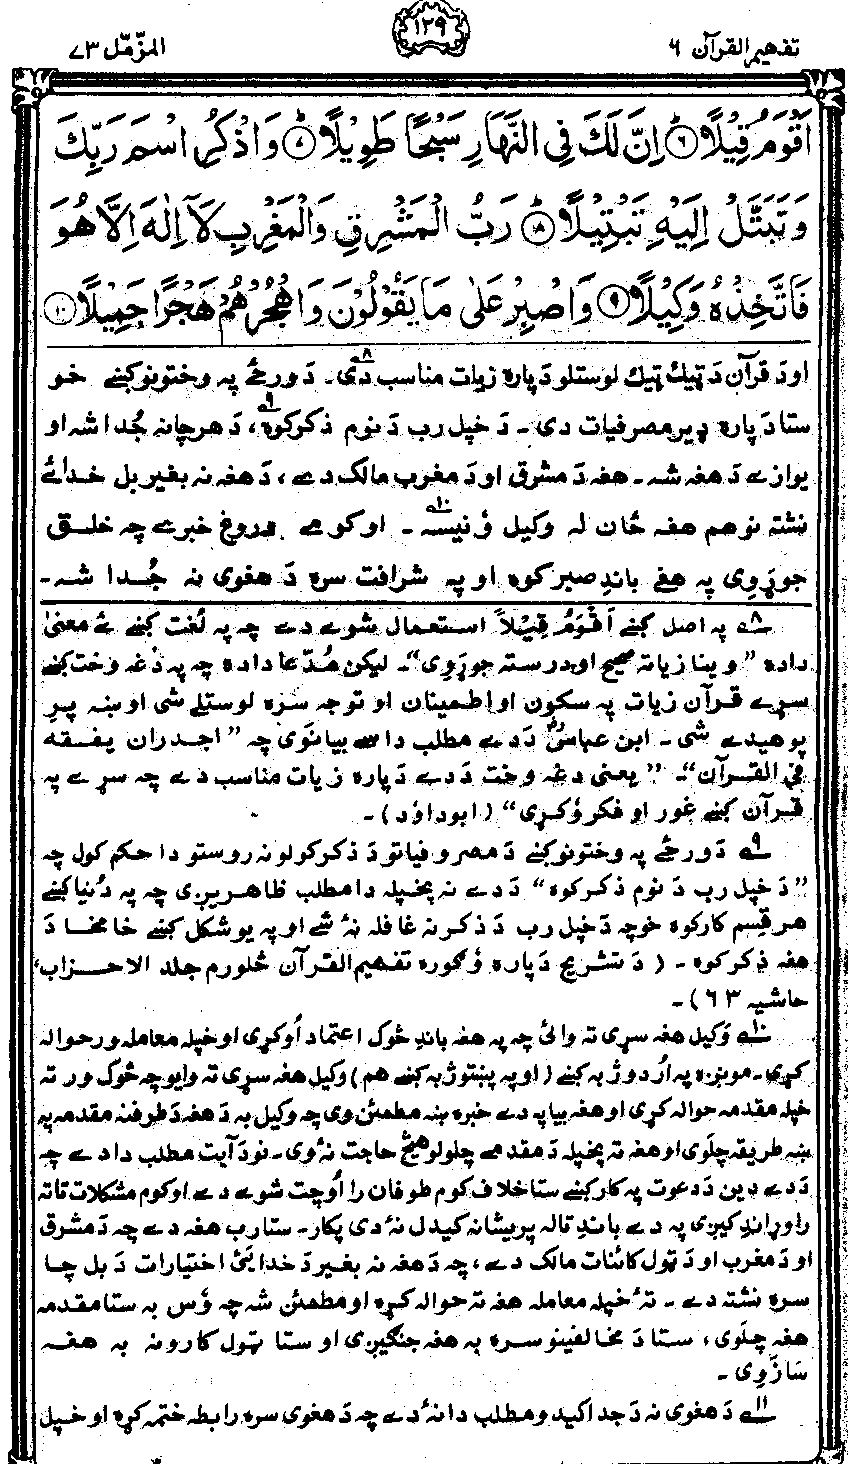 تفهيم القرآن ۶
۱۲۹
المزّمّل ۷۳
اَقْوَمُ قِيْلًا ۝۶ اِنَّ لَكَ فِى النَّهَارِ سَبْحًا طَوِيْلًا ۝۷ وَاذْكُرِ اسْمَ رَبِّكَ
وَتَبَتَّلْ اِلَيْهِ تَبْتِيْلًا ۝۸ رَبُّ الْمَشْرِقِ وَالْمَغْرِبِ لَآ اِلٰهَ اِلَّا هُوَ
فَاتَّخِذْهُ وَكِيْلًا ۝۹ وَاصْبِرْ عَلٰى مَا يَقُوْلُوْنَ وَاهْجُرْهُمْ هَجْرًا جَمِيْلًا ۝۱۰
اودَ قرآن دَ ټيك ټيك لوستلو دَ پاره زيات مناسب دى۸. دَ ورځے په وختونو كښے خو
ستا دَ پاره ډير مصرفيات دى - دَ خپل رب دَ نوم ذكر كوه۹، دَ هر چا نه جُدا شه او
يوازے دَ هغه شه - هغه دَ مشرق او دَ مغرب مالك دے، دَ هغه نه بغير بل خدائے
نشته نو هم هغه ځان له وكيل وُ نيسه۱۰ - او كومے دروغ خبرے چه خلق
جوړوى په هغے باندِ صبر كوه او په شرافت سره دَ هغوى نه جُدا شه -
۸ے په اصل كښے اَقْوَمُ قِيْلاً استعمال شوے دے چه په لُغت كښے ئے معنىٰ
داده ”وينا زياته صحيح او درسته جوړوى“۔ ليكن مُدّعا داده چه په دَغه وخت كښے
سړے قرآن زيات په سكون او اطمينان او توجه سره لوستلے شى او ښه پرِ
پوهيدے شى - ابن عباسؓ دَ دے مطلب داسے بيانوى چه ”اجدران يفقه
فى القرآن“۔ ”يعنى دغه وخت دَ دے دَ پاره زيات مناسب دے چه سړے په
قرآن كښے غور او فكر وُكړى“ (ابوداؤد) -
۹ے دَ ورځے په وختونو كښے دَ مصروفياتو دَ ذكر كولو نه روستو دا حكم كول چه
”دَ خپل رب دَ نوم ذكر كوه“ دَ دے نه پخپله دا مطلب ظاهريږى چه په دُنيا كښے
هر قِسم كار كوه خو چه دَ خپل رب دَ ذكر نه غافله نهٔ شے او په يو شكل كښے خامخا دَ
هغه ذكر كوه - (دَ تشريح دَ پاره وُګوره تفهيم القرآن څلورم جلد الاحزاب،
حاشيه ۶۳) -
۱۰ے وَكيل هغه سړى ته وائى چه په هغه باندِ څوك اعتماد اُوكړى او خپله معامله ورحواله
كړى - مونږه په اُردو ژبه كښے (او په پښتو ژبه كښے هم) وكيل هغه سړى ته وايو چه څوك ورته
خپله مقدمه حواله كړى او هغه بيا په دے خبره ښه مطمئن وى چه وكيل به دَ هغه دَ طرفنه مقدمه په
ښه طريقه چلَوى او هغه ته پخپله دَ مقدمے چلولو هيڅ حاجت نهٔ وى - نو دَ آيت مطلب دادے چه
دَ دے دين دَ دعوت په كار كښے ستا خلاف كوم طوفان را اُوچت شوے دے او كوم مشكلات تا ته
راوړاندِ كيږى په دے باندِ تاله پريشانه كيدل نهٔ دى پكار - ستا رب هغه دے چه دَ مشرق
او دَ مغرب او دَ ټول كائنات مالك دے، چه دَ هغه نه بغير دَ خدايئ اختيارات دَ بل چا
سره نشته دے - تهٔ خپله معامله هغه ته حواله كړه او مطمئن شه چه وُس به ستا مقدمه
هغه چلَوى، ستا دَ مخالفينو سره به هغه جنګيږى او ستا ټول كارونه به هغه
سَازَوى -
۱۱ے دَ هغوى نه دَ جدا كيدو مطلب دا نهٔ دے چه دَ هغوى سره رابطه ختمه كړه او خپل